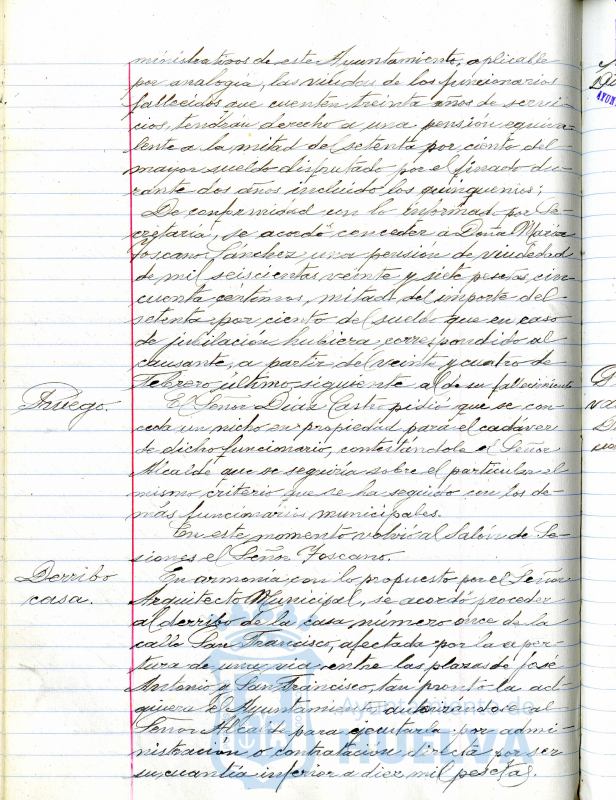 ministrativos de este Ayuntamiento, aplicable
por analogía, las viudas de los funcionarios
fallecidos que cuenten treinta años de servi-
cios, tendrán derecho a una pensión equiva-
lente a la mitad del setenta por ciento del
mayor sueldo disfrutado por el finado du-
rante dos años incluido los quinquenios;
De conformidad con lo informado por Se-
cretaría, se acordó conceder a Doña María
Toscano Sánchez una pensión de viudedad
de mil seiscientas veinte y siete pesetas, cin-
cuenta céntimos, mitad del importe del
setenta por ciento del sueldo que en caso
de jubilación hubiera correspondido al
causante, a partir del veinte y cuatro de
Febrero último siguiente al de su fallecimiento
Ruego.
El Señor Díaz Castro pidió que se con-
ceda un nicho en propiedad para el cadáver
de dicho funcionario, contestándole el Señor
Alcalde que se seguiría sobre el particular el
mismo criterio que se ha seguido con los de-
más funcionarios municipales.
En este momento volvió al Salón de Se-
siones el Señor Toscano.
Derribo
casa.
En armonía con lo propuesto por el Señor
Arquitecto Municipal, se acordó proceder
al derribo de la casa número once de la
calle San Francisco, afectada por la aper-
tura de una vía entre las plazas de José
Antonio y San Francisco, tan pronto la ad-
quiera el Ayuntamiento autorizándose al
Señor Alcalde para ejecutarlo por admi-
nistración o contratación directa por ser
su cuantía inferior a diez mil pesetas.
Ayuntamiento de
HUELVA